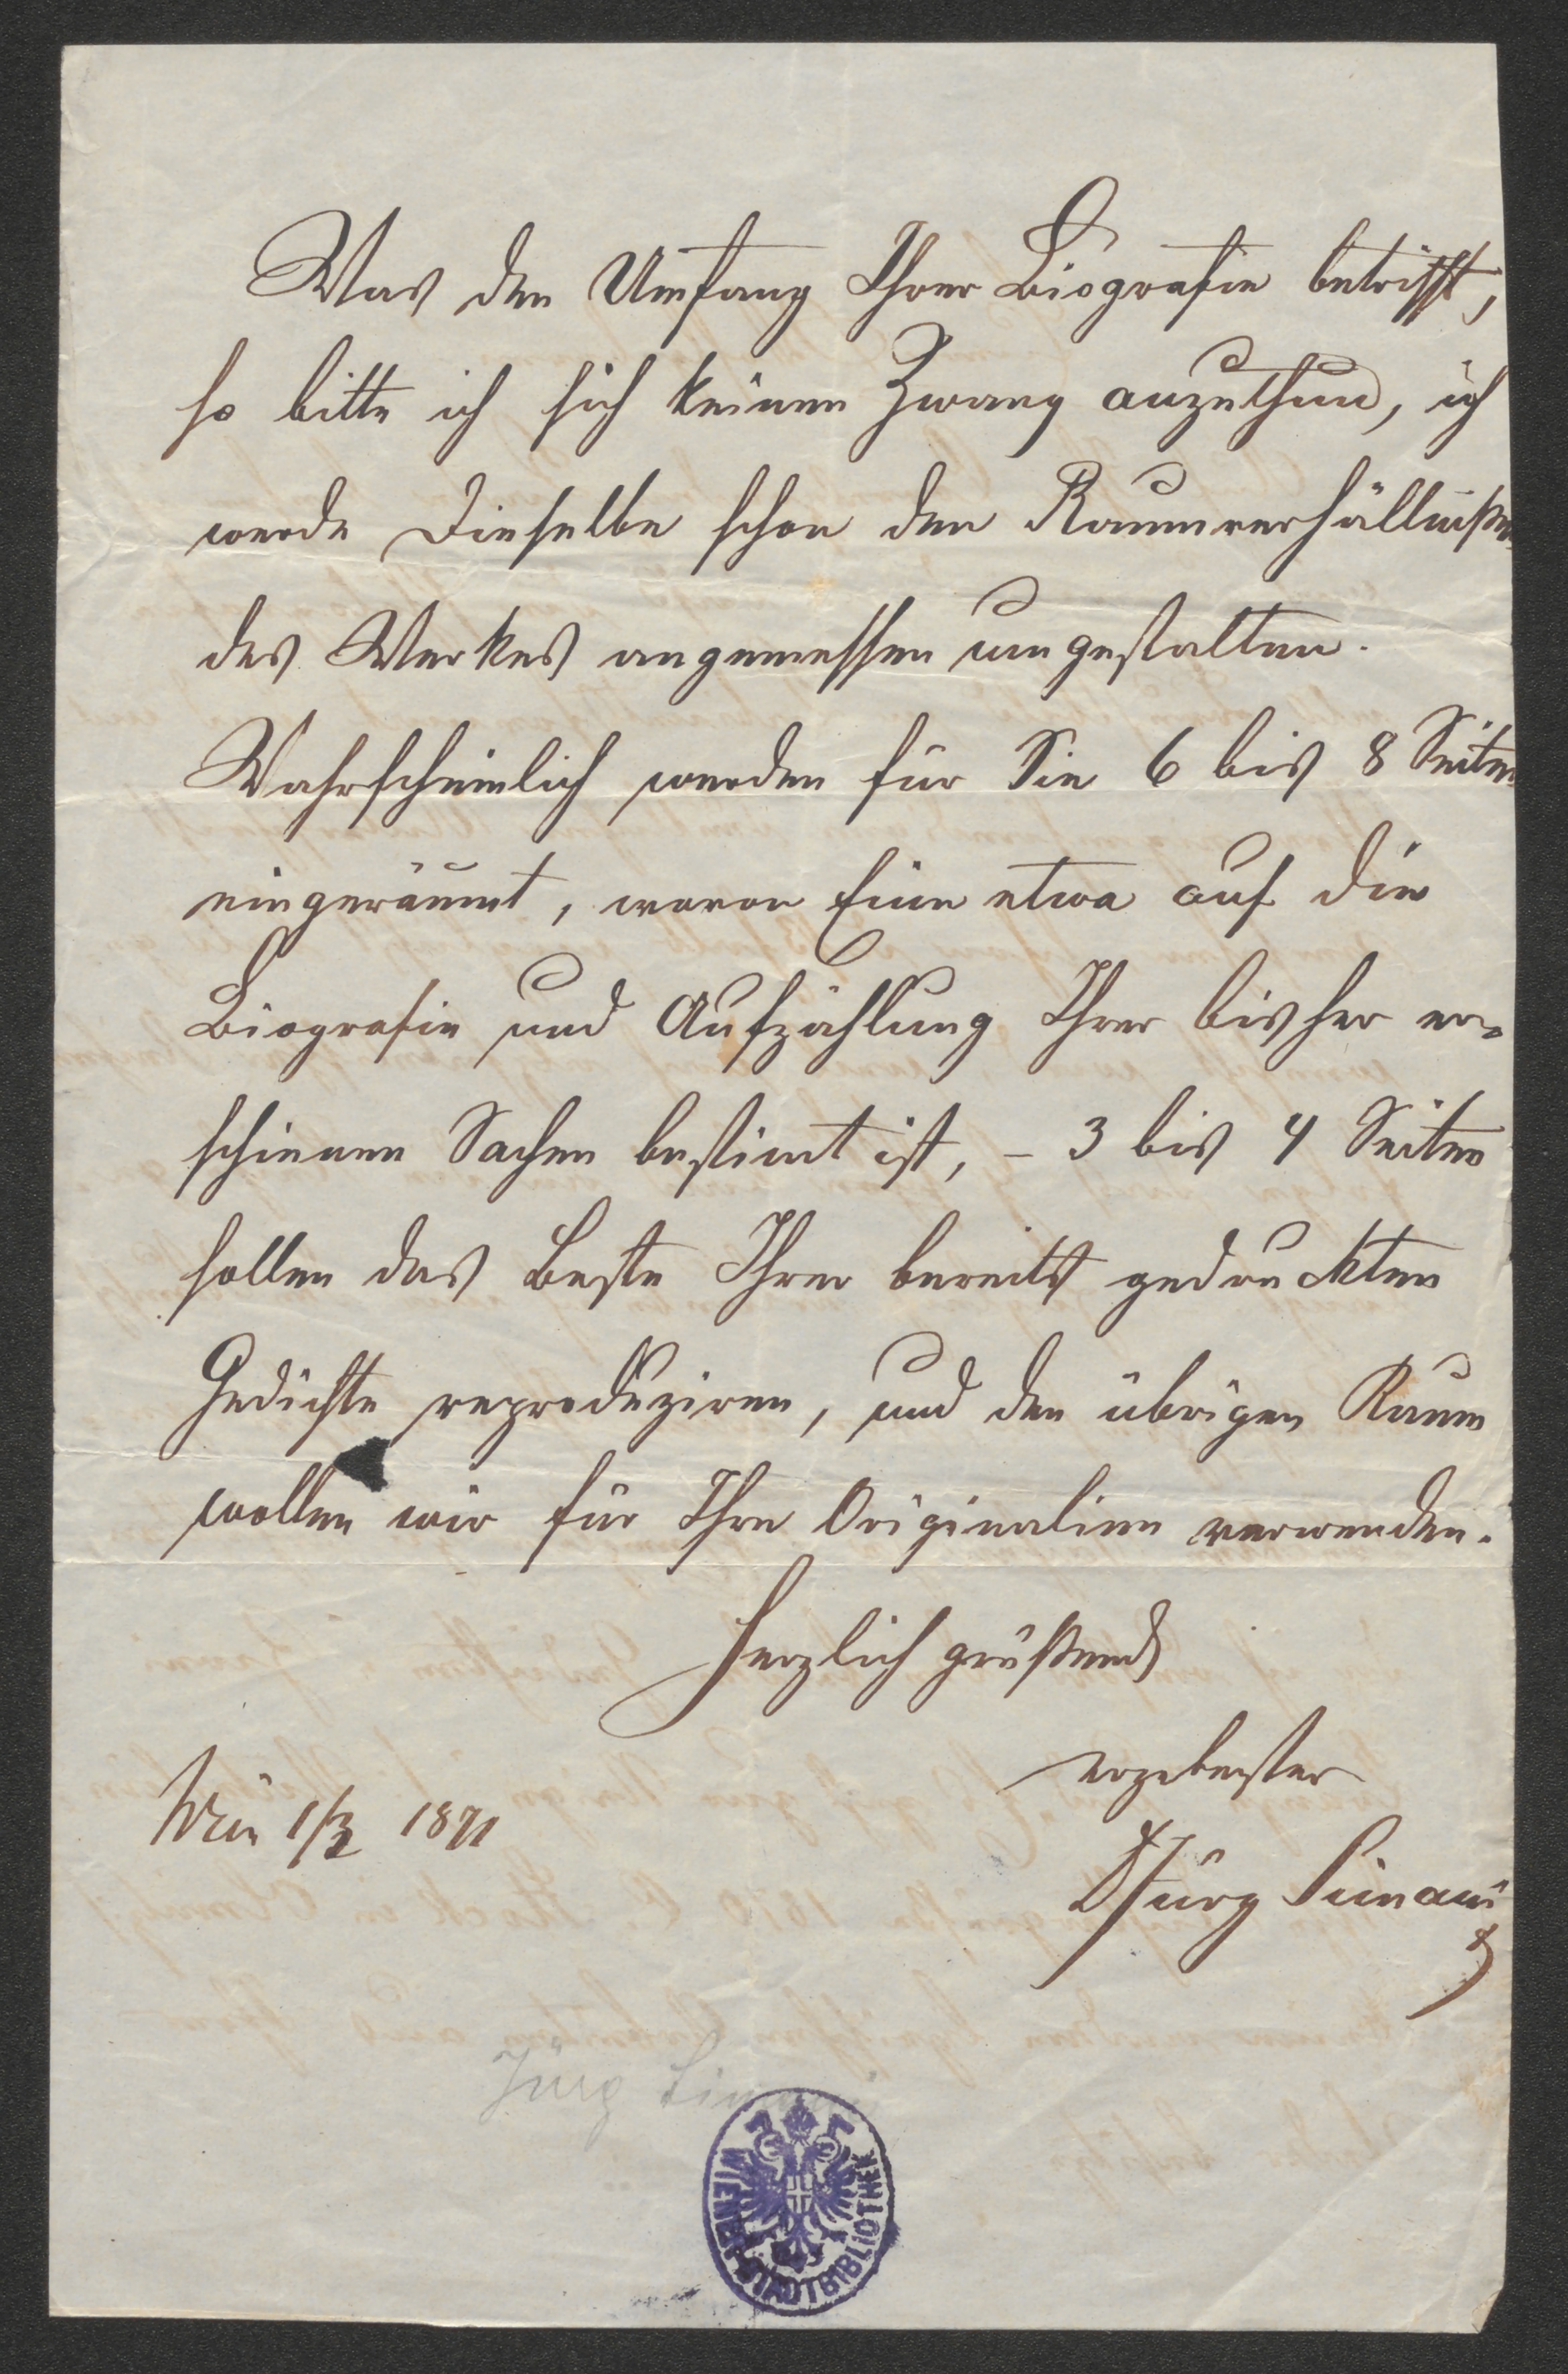 Was den Umfang Ihrer Biografie betrifft,
so bitte ich sich keinen Zwang anzuthun, ich
werde Dieselbe schon den Raumverhältnißen
des Werkes angemessen umgestalten.
Wahrscheinlich werden für Sie 6 bis 8 Seiten
eingeräumt, wovon Eine etwa auf die
Biografie und Aufzählung Ihrer bisher er-
schienen Sachen bestimt ist, – 3 bis 4 Seiten
sollen das Beste Ihrer bereits gedruckten
Gedichte reproduziren, und den übrigen Raum
wollen wir für Ihre Originalien verwenden.
Herzlich grüßend
ergebenster
Wien 1/3 1871
Jürg Simani
Jürg Simani
WIENER STADTBIBLIOTHEK